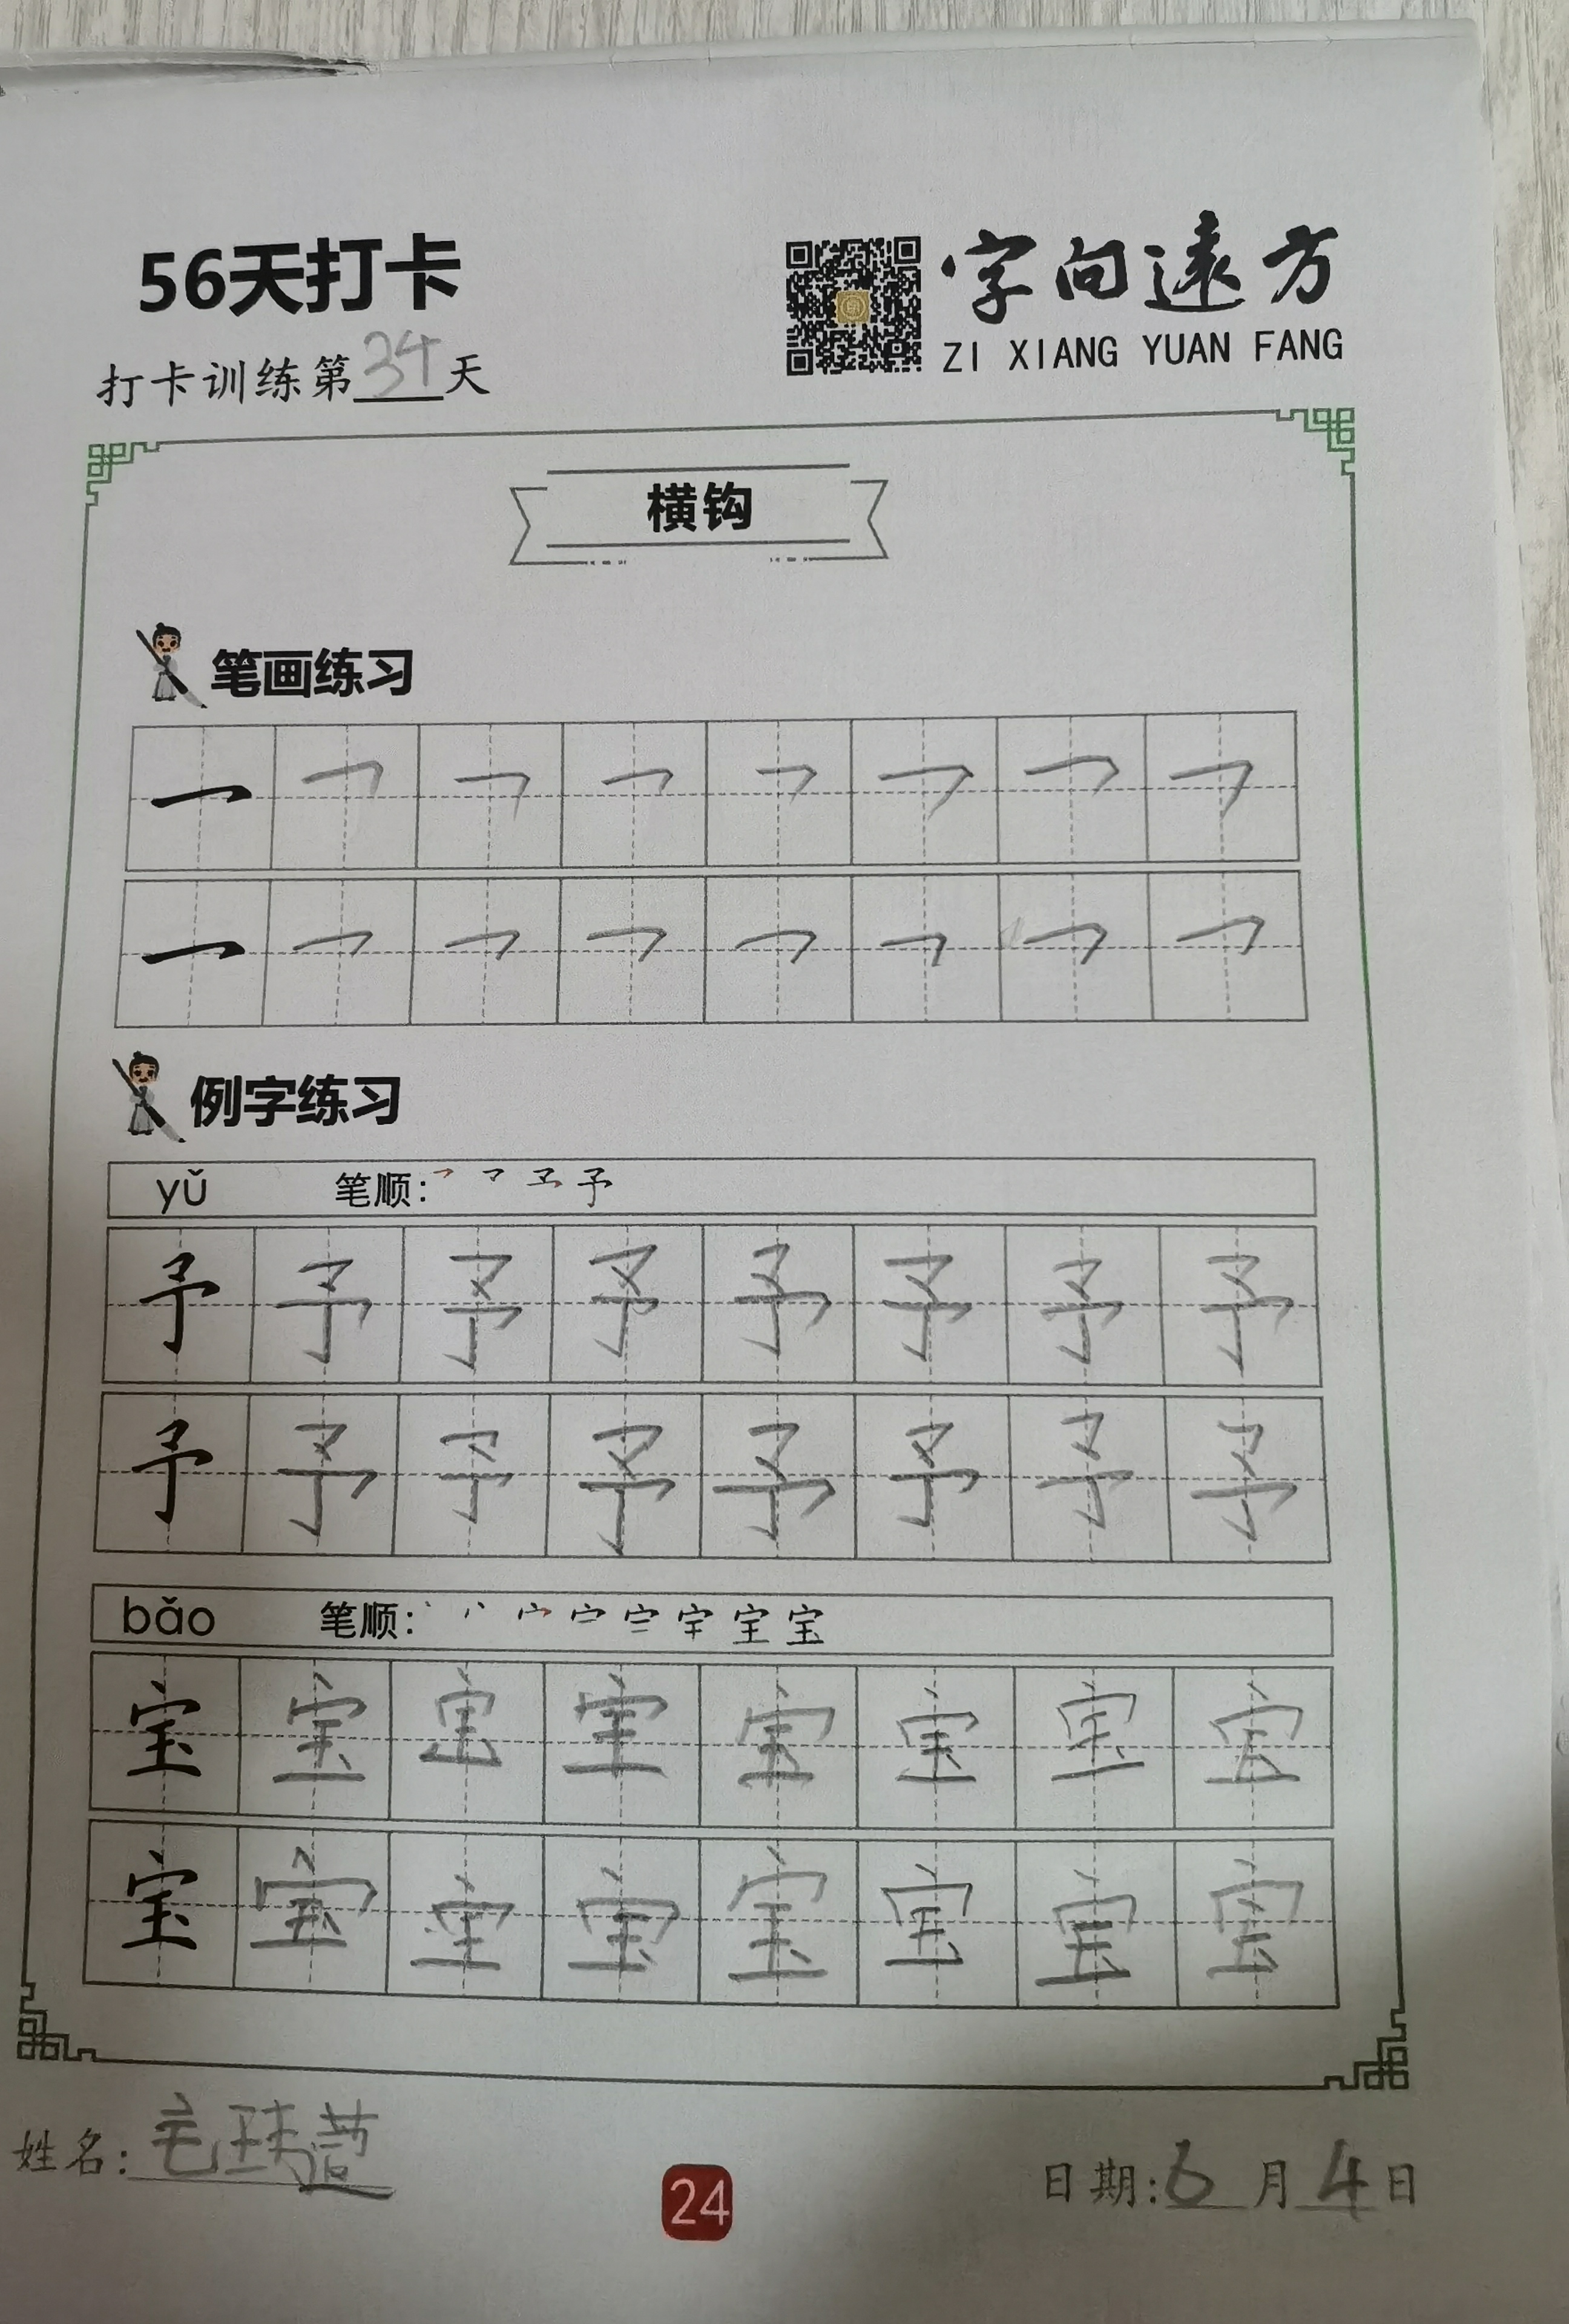 56天打卡
字向遠方
ZI XIANG YUAN FANG
打卡训练第34天
横钩
笔画练习
例字练习
yǔ 笔顺:
予 予 予 予 予 予 予 予
予 予 予 予 予 予 予 予
bǎo 笔顺:
宝 宝 宝 宝 宝 宝 宝 宝
宝 宝 宝 宝 宝 宝 宝 宝
姓名:
24
日期:6月4日